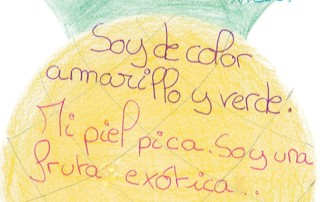 Soy de color
amarillo y verde.
Mi piel pica. Soy una
fruta exótica..